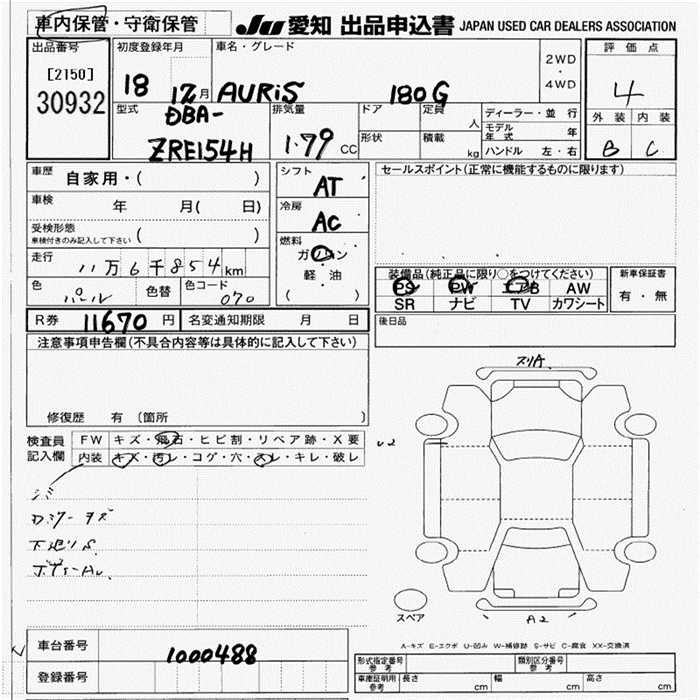 車内保管・守衛保管
JU 愛知 出品申込書 JAPAN USED CAR DEALERS ASSOCIATION
出品番号
[2150]
30932
初度登録年月
18 12月
車名・グレード
AURiS 180G
2WD
・
4WD
評価点
4
外装 内装
B C
型式
DBA-
ZRE154H
排気量
1.79 CC
ドア
形状
定員 人
積載 kg
ディーラー・並行
モデル年式 年
ハンドル 左・右
車歴 自家用・( )
車検 年 月( 日)
受検形態
車検付きのみ記入して下さい ( )
走行 11万6千854km
色 パール 色替 色コード 070
シフト AT
冷房 AC
燃料
ガソリン
・
軽・油
( )
セールスポイント(正常に機能するものに限ります)
装備品(純正品に限り○をつけてください)
PS PW エアB AW
SR ナビ TV カワシート
新車保証書
有・無
後日品
R券 11670円 名変通知期限 月 日
注意事項申告欄(不具合内容等は具体的に記入して下さい)
修復歴 有(箇所 )
検査員記入欄
FW キズ・飛石・ヒビ割・リペア跡・X要
内装 キズ・汚レ・コゲ・穴・スレ・キレ・破レ
シミ
スリA
U2
A2
スペア
A-キズ E-エクボ U-凹み W-補修跡 S-サビ C-腐食 XX-交換済
車台番号 1000488
登録番号
型式指定番号
参考
類別区分番号
参考
車庫証明用
参考
長さ cm 幅 cm 高さ cm